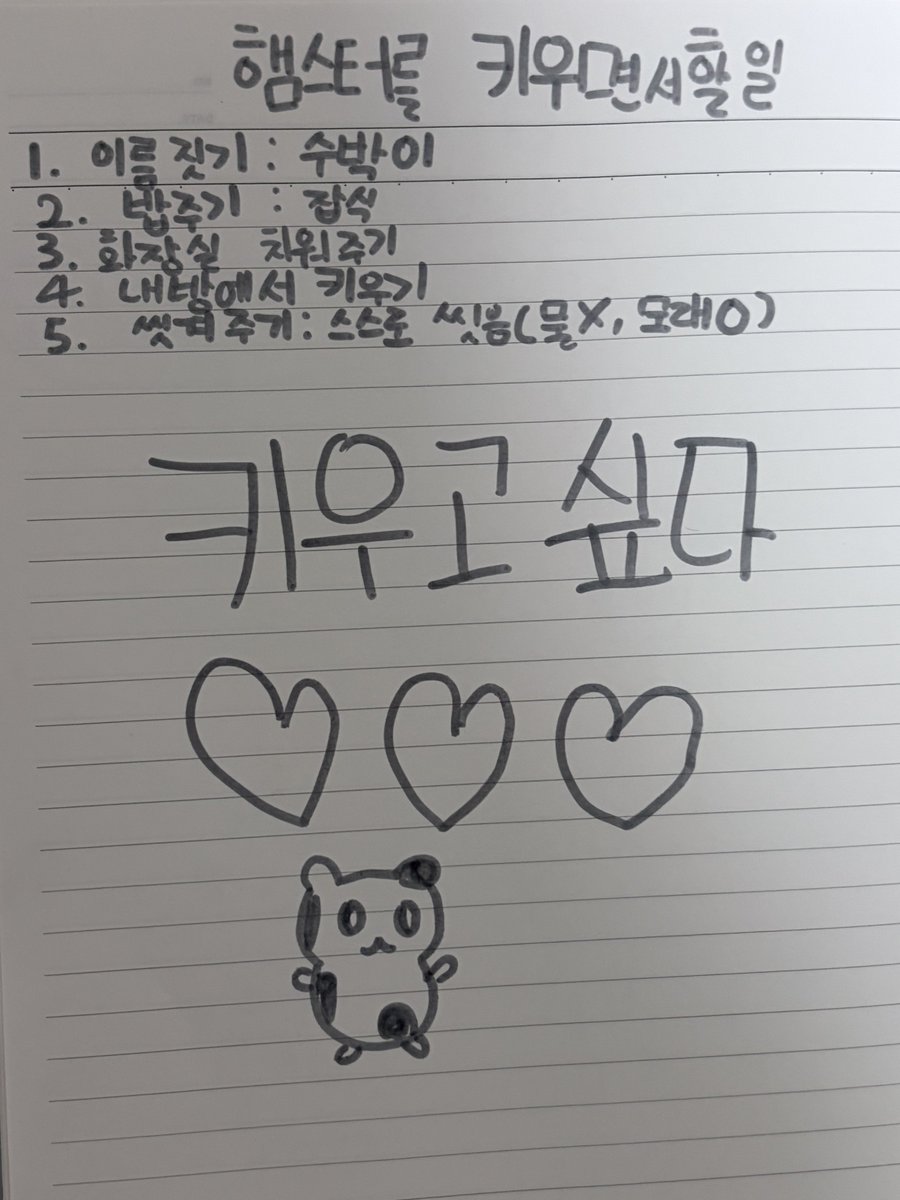 햄스터를 키우면서할일
1. 이름 짓기 : 수박이
2. 밥주기 : 잡식
3. 화장실 치워주기
4. 내방에서 키우기
5. 씻겨주기 : 스스로 씻음(물X, 모래O)
키우고 싶다